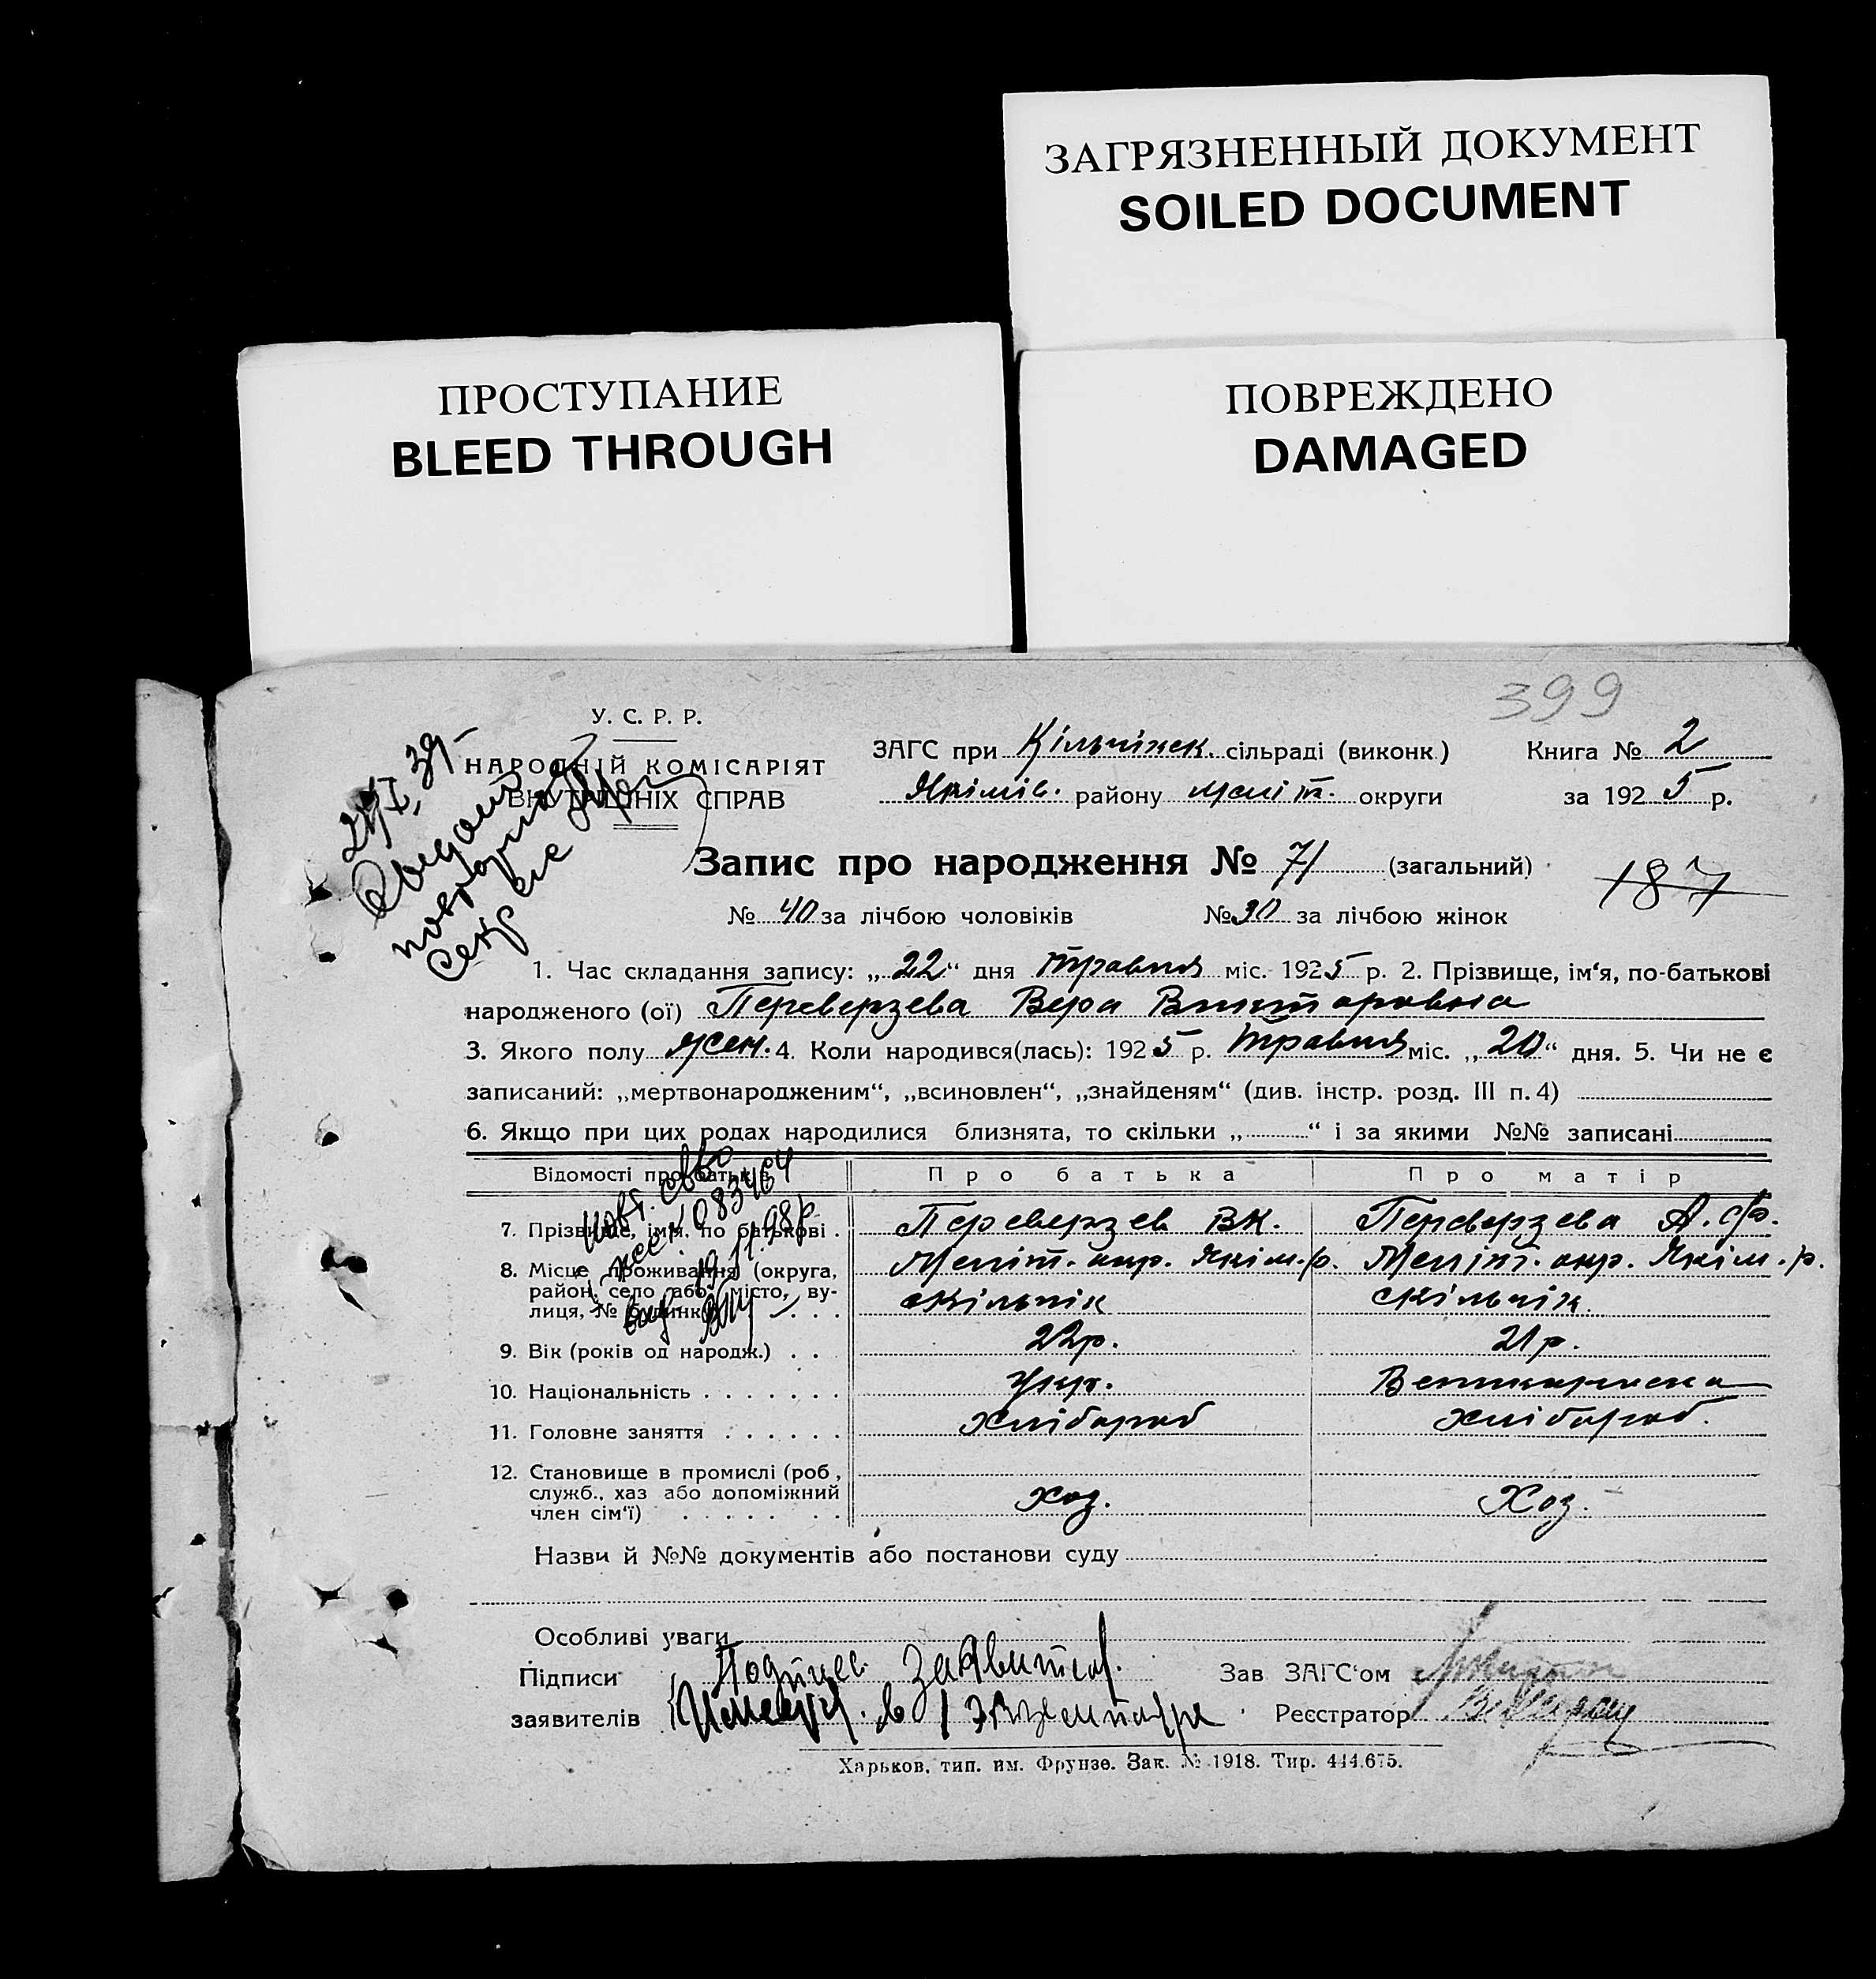 ЗАГРЯЗНЕННЫЙ ДОКУМЕНТ
SOILED DOCUMENT
ПРОСТУПАНИЕ
BLEED THROUGH
ПОВРЕЖДЕНО
DAMAGED
399
У. С. Р. Р.
НАРОДНІЙ КОМІСАРІЯТ
ВНУТРІШНІХ СПРАВ
ЗАГС при Кільчіжск. сільраді (виконк.)
Книга № 2
Якімів. району меліт. округи
за 1925 р.
Запис про народження № 71 (загальний)
187
№ 40 за лічбою чоловіків
№ 30 за лічбою жінок
1. Час складання запису: „22“ дня травня міс. 1925 р. 2. Прізвище, ім‘я, по-батькові
народженого (ої) Переверзева Вера Викторовна
3. Якого полу жен. 4. Коли народився(лась): 1925 р. Травня міс. „20“ дня. 5. Чи не є
записаний: „мертвонародженим“, „всиновлен“, „знайденям“ (див. інстр. розд. III п. 4)
6. Якщо при цих родах народилися близнята, то скільки „ “ і за якими №№ записані
Відомості про батьків
Про батька
Про матір
7. Прізвище, ім‘я, по батькові . Переверзев В К. Переверзева А. Ф.
8. Місце проживання (округа, район, село або місто, вулиця, № будинку) . . .
Меліт. окр. Якім. р. Меліт. окр. Якім. р.
с Кільчік с Кільчік
9. Вік (років од народж.) . . 22 р. 21 р.
10. Національність . . . . . . . Укр. Великоруска
11. Головне заняття . . . . . . Хлібороб Хлібороб.
12. Становище в промислі (роб., служб., хаз або допоміжний член сім‘ї) . . . . . . . Хоз. Хоз.
Повт. св-во
083464
19.11.98р
Назви й №№ документів або постанови суду
Особливі уваги
Підписи
заявителів
Подпись заявител.
в 1 экземпляре
Зав ЗАГС‘ом
Реєстратор
Харьков, тип. им. Фрунзе. Зак. № 1918. Тир. 444.675.